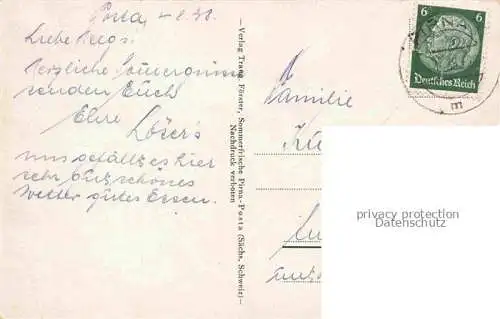 Posta
Liebe
Herzliche Sommergrüsse
senden Euch
Löser's
uns gefällt es hier
sehr gut schönes
Wetter gutes Essen.
- Verlag Traug. Förster, Sommerfrische Pirna-Posta (Sächs. Schweiz) -
Nachdruck verboten
Familie
6 6
Deutsches Reich
privacy protection
Datenschutz